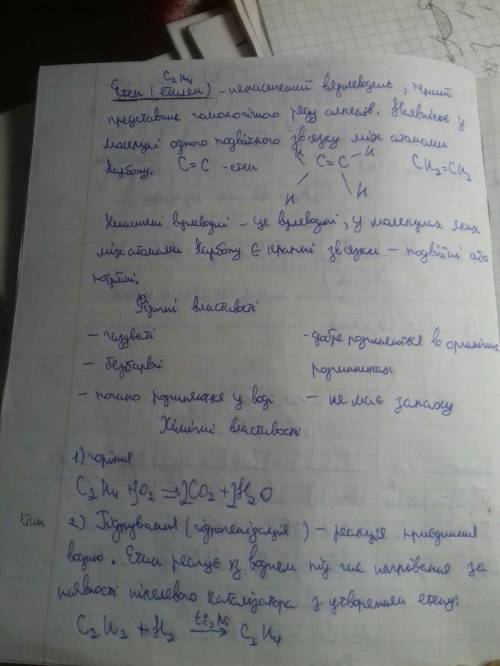 C₂H₄
Етен (етилен) – ненасичений вуглеводень, перший
представник гомологічного ряду алкенів. Наявність у
молекулі одного подвійного зв'язку між атомами
Карбону. C=C -етен H C=C H CH₂=CH₂
H H
Ненасичені вуглеводні – це вуглеводні, у молекулах яких
між атомами Карбону є кратні зв'язки – подвійні або
потрійні.
Фізичні властивості
– газуваті - добре розчиняються в органічних
– безбарвні розчинниках
– погано розчиняються у воді – не має запаху
Хімічні властивості
1) горіння
C₂H₄ + 3O₂ → 2CO₂ + 2H₂O
Етин 2) Гідрування (гідрогенізація) – реакція приєднання
водню. Етин реагує із воднем під час нагрівання за
наявності нікелевого каталізатора з утворенням етену:
C₂H₂ + H₂ t, Ni→ C₂H₄